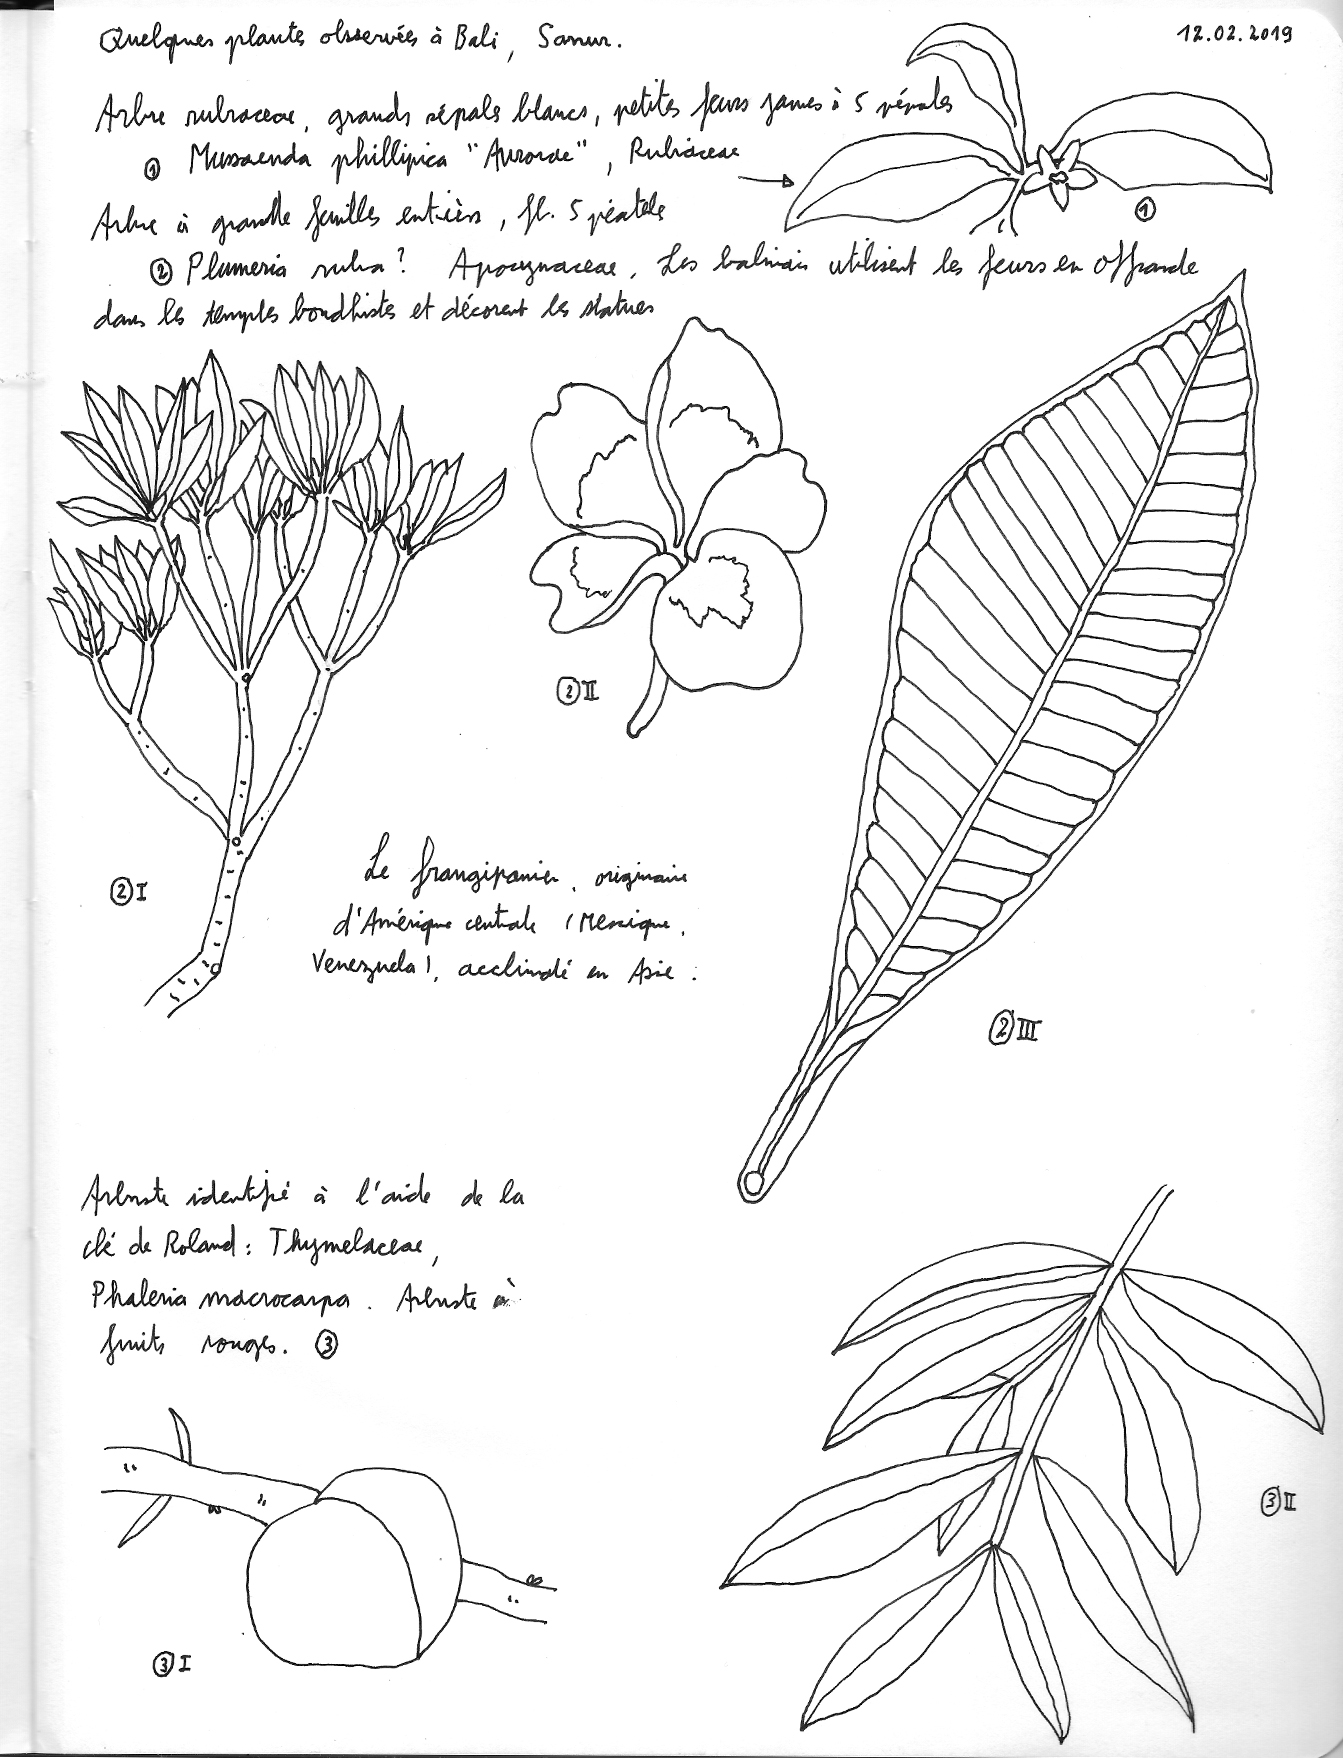 Quelques plantes observées à Bali, Sanur.
12.02.2019
Arbre rubraceae, grands sépals blancs, petites feurs jaunes à 5 pépales
① Mussaenda phillipica "Aurorae", Rubiaceae
Arbre à grande feuilles entières, fl. 5 péatels
①
② Plumeria rubra? Apocynaceae. Les balinais utilisent les feurs en offrande
dans les temples boudhistes et décorent les statues
② II
Le frangipanier, originaire
② I
d'Amérique centrale (Mexique,
Venezuela), acclimaté en Asie.
② III
Arbuste identifié à l'aide de la
clé de Roland: Thymelaceae,
Phaleria macrocarpa. Arbuste à
fruits rouges. ③
③ II
③ I